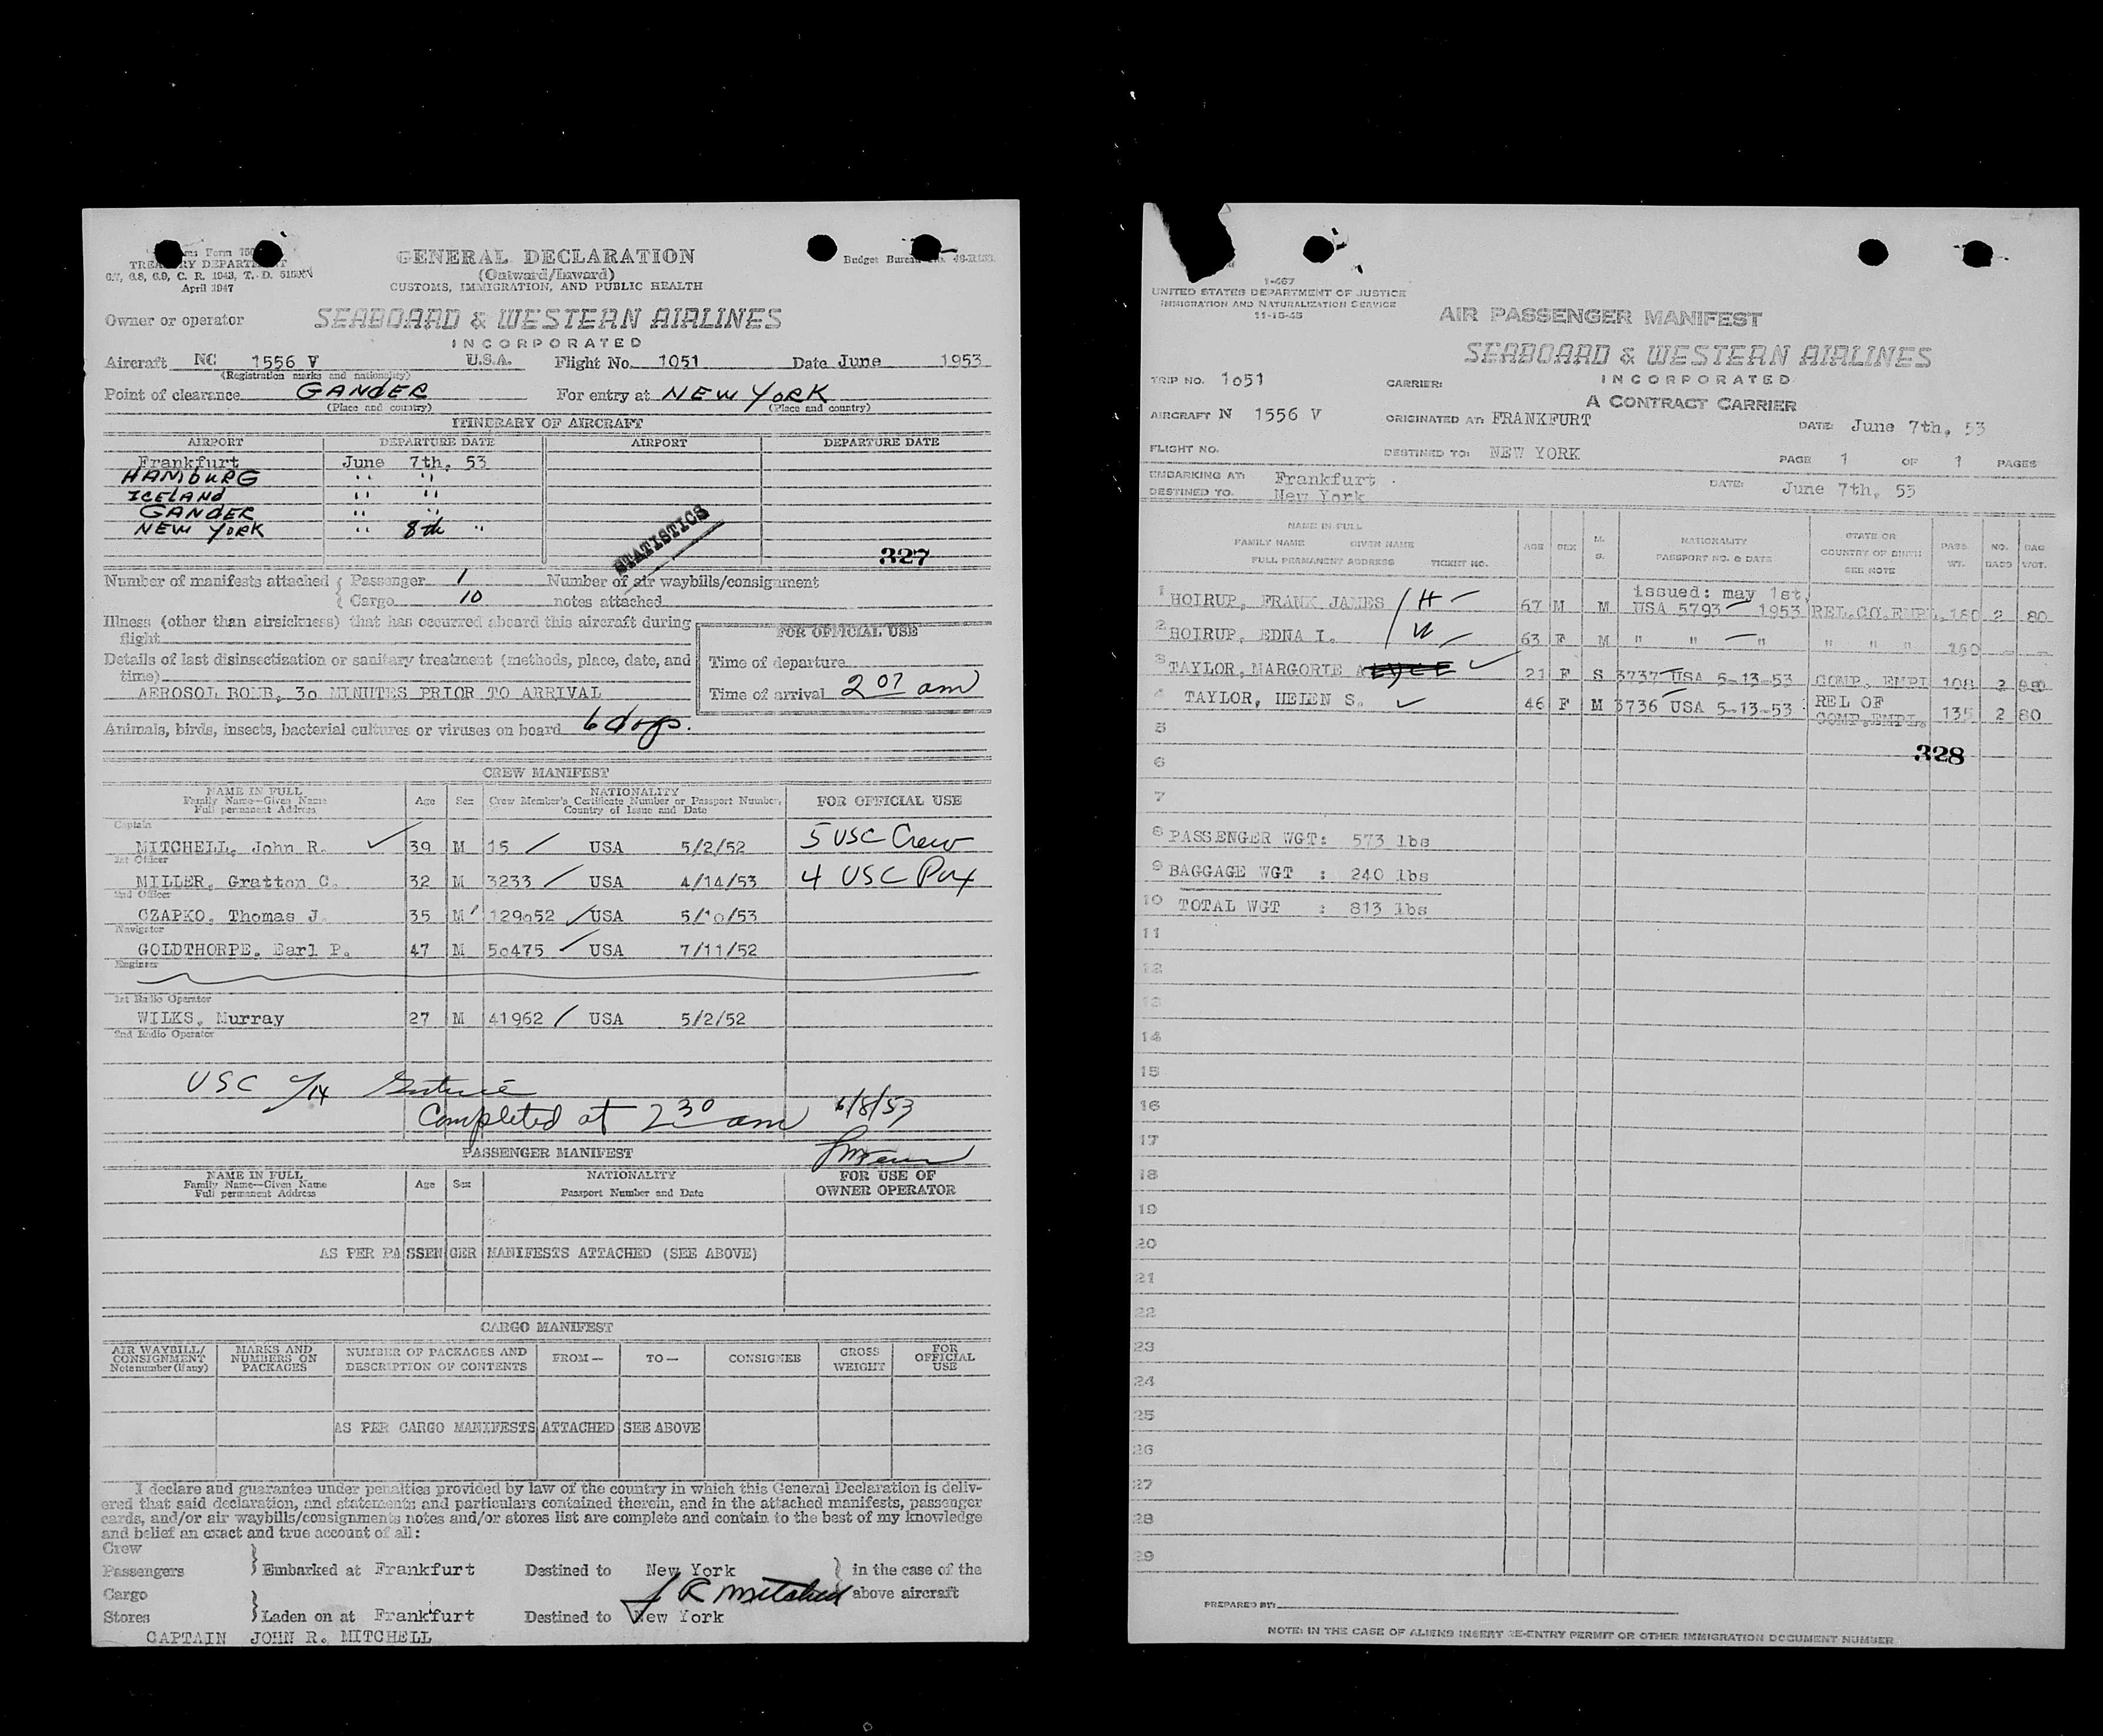 GENERAL DECLARATION
(Outward/Inward)
CUSTOMS, IMMIGRATION, AND PUBLIC HEALTH
TREASURY DEPARTMENT
6.7, 6.8, 6.9, C. R. 1943, T. D.
April 1947
Budget Bureau No.
Owner or operator SEABOARD & WESTERN AIRLINES
INCORPORATED
Aircraft NC 1556 V U.S.A. Flight No. 1051 Date June 1953
(Registration marks and nationality)
Point of clearance GANDER For entry at NEW YORK
(Place and country) (Place and country)
ITINERARY OF AIRCRAFT
AIRPORT DEPARTURE DATE AIRPORT DEPARTURE DATE
Frankfurt June 7th, 53
HAMBURG " "
ICELAND " "
GANDER " "
NEW YORK " 8th "
STATISTICS
327
Number of manifests attached { Passenger 1 Number of air waybills/consignment
{ Cargo 10 notes attached
Illness (other than airsickness) that has occurred aboard this aircraft during
flight
FOR OFFICIAL USE
Details of last disinsectization or sanitary treatment (methods, place, date, and
time)
AEROSOL BOMB, 3o MINUTES PRIOR TO ARRIVAL
Time of departure
Time of arrival 2 07 am
Animals, birds, insects, bacterial cultures or viruses on board 6 dogs.
CREW MANIFEST
NAME IN FULL
Family Name—Given Name
Full permanent Address
Age Sex
NATIONALITY
Crew Member's Certificate Number or Passport Number,
Country of Issue and Date
FOR OFFICIAL USE
Captain
MITCHELL, John R. 39 M 15 USA 5/2/52 5 USC Crew
1st Officer
MILLER, Gratton C. 32 M 3233 USA 4/14/53 4 USC Pax
2nd Officer
CZAPKO, Thomas J. 35 M 129o52 USA 5/10/53
Navigator
GOLDTHORPE, Earl P. 47 M 5o475 USA 7/11/52
Engineer
1st Radio Operator
WILKS, Murray 27 M 41962 USA 5/2/52
2nd Radio Operator
USC
Completed at 2 30 am 6/8/53
PASSENGER MANIFEST
NAME IN FULL
Family Name—Given Name
Full permanent Address
Age Sex
NATIONALITY
Passport Number and Date
FOR USE OF
OWNER OPERATOR
AS PER PASSENGER MANIFESTS ATTACHED (SEE ABOVE)
CARGO MANIFEST
AIR WAYBILL/
CONSIGNMENT
Note number (if any)
MARKS AND
NUMBERS ON
PACKAGES
NUMBER OF PACKAGES AND
DESCRIPTION OF CONTENTS
FROM— TO— CONSIGNEE
GROSS
WEIGHT
FOR
OFFICIAL
USE
AS PER CARGO MANIFESTS ATTACHED SEE ABOVE
I declare and guarantee under penalties provided by law of the country in which this General Declaration is deliv-
ered that said declaration, and statements and particulars contained therein, and in the attached manifests, passenger
cards, and/or air waybills/consignments notes and/or stores list are complete and contain to the best of my knowledge
and belief an exact and true account of all:
Crew
Passengers } Embarked at Frankfurt Destined to New York } in the case of the
Cargo J R Mitchell above aircraft
Stores } Laden on at Frankfurt Destined to New York
CAPTAIN JOHN R. MITCHELL
I-467
UNITED STATES DEPARTMENT OF JUSTICE
IMMIGRATION AND NATURALIZATION SERVICE
11-15-45
AIR PASSENGER MANIFEST
SEABOARD & WESTERN AIRLINES
INCORPORATED
A CONTRACT CARRIER
TRIP NO. 1o51 CARRIER:
AIRCRAFT N 1556 V ORIGINATED AT: FRANKFURT DATE: June 7th, 53
FLIGHT NO. DESTINED TO: NEW YORK PAGE 1 OF 1 PAGES
EMBARKING AT: Frankfurt DATE: June 7th, 53
DESTINED TO. New York
NAME IN FULL
FAMILY NAME GIVEN NAME
FULL PERMANENT ADDRESS TICKET NO.
AGE SEX M. S.
NATIONALITY
PASSPORT NO. & DATE
STATE OR
COUNTRY OF BIRTH
SEE NOTE
PASS. WT. NO. BAGS BAG WGT.
issued: may 1st,
1 HOIRUP, FRANK JAMES H 67 M M USA 5793 1953 REL.CO.EMPL. 180 2 80
2 HOIRUP, EDNA I. W 63 F M " " " " " " 150 - -
3 TAYLOR, MARGORIE A 21 F S 3737 USA 5-13-53 COMP. EMPL 108 2 80
4 TAYLOR, HELEN S. 46 F M 3736 USA 5-13-53 REL OF
COMP.EMPL. 135 2 80
5
328
6
7
8 PASSENGER WGT: 573 lbs
9 BAGGAGE WGT : 240 lbs
10 TOTAL WGT : 813 lbs
11
12
13
14
15
16
17
18
19
20
21
22
23
24
25
26
27
28
29
PREPARED BY:
NOTE: IN THE CASE OF ALIENS INSERT RE-ENTRY PERMIT OR OTHER IMMIGRATION DOCUMENT NUMBER